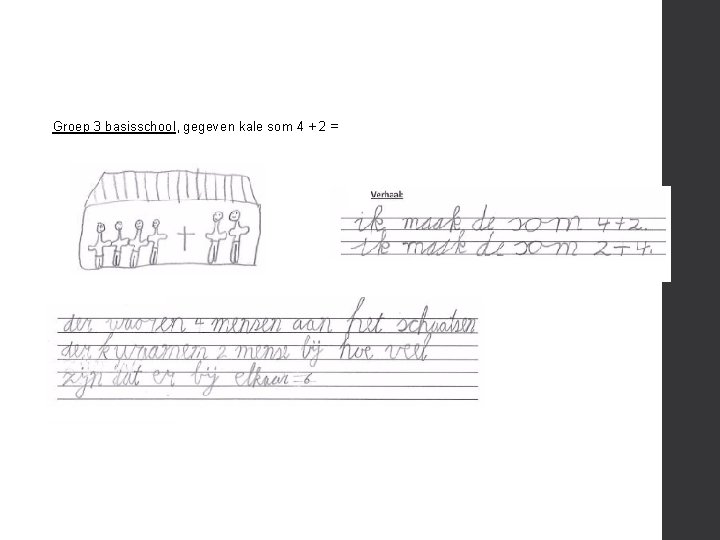 Groep 3 basisschool, gegeven kale som 4 + 2 =
+
Verhaal:
ik maak de som 4+2.
ik mak de som 2+4.
der waoren 4 mensen aan het schaatsen
der kwaamem 2 mense bij hoe veel
zijn dat er bij elkaar = 6